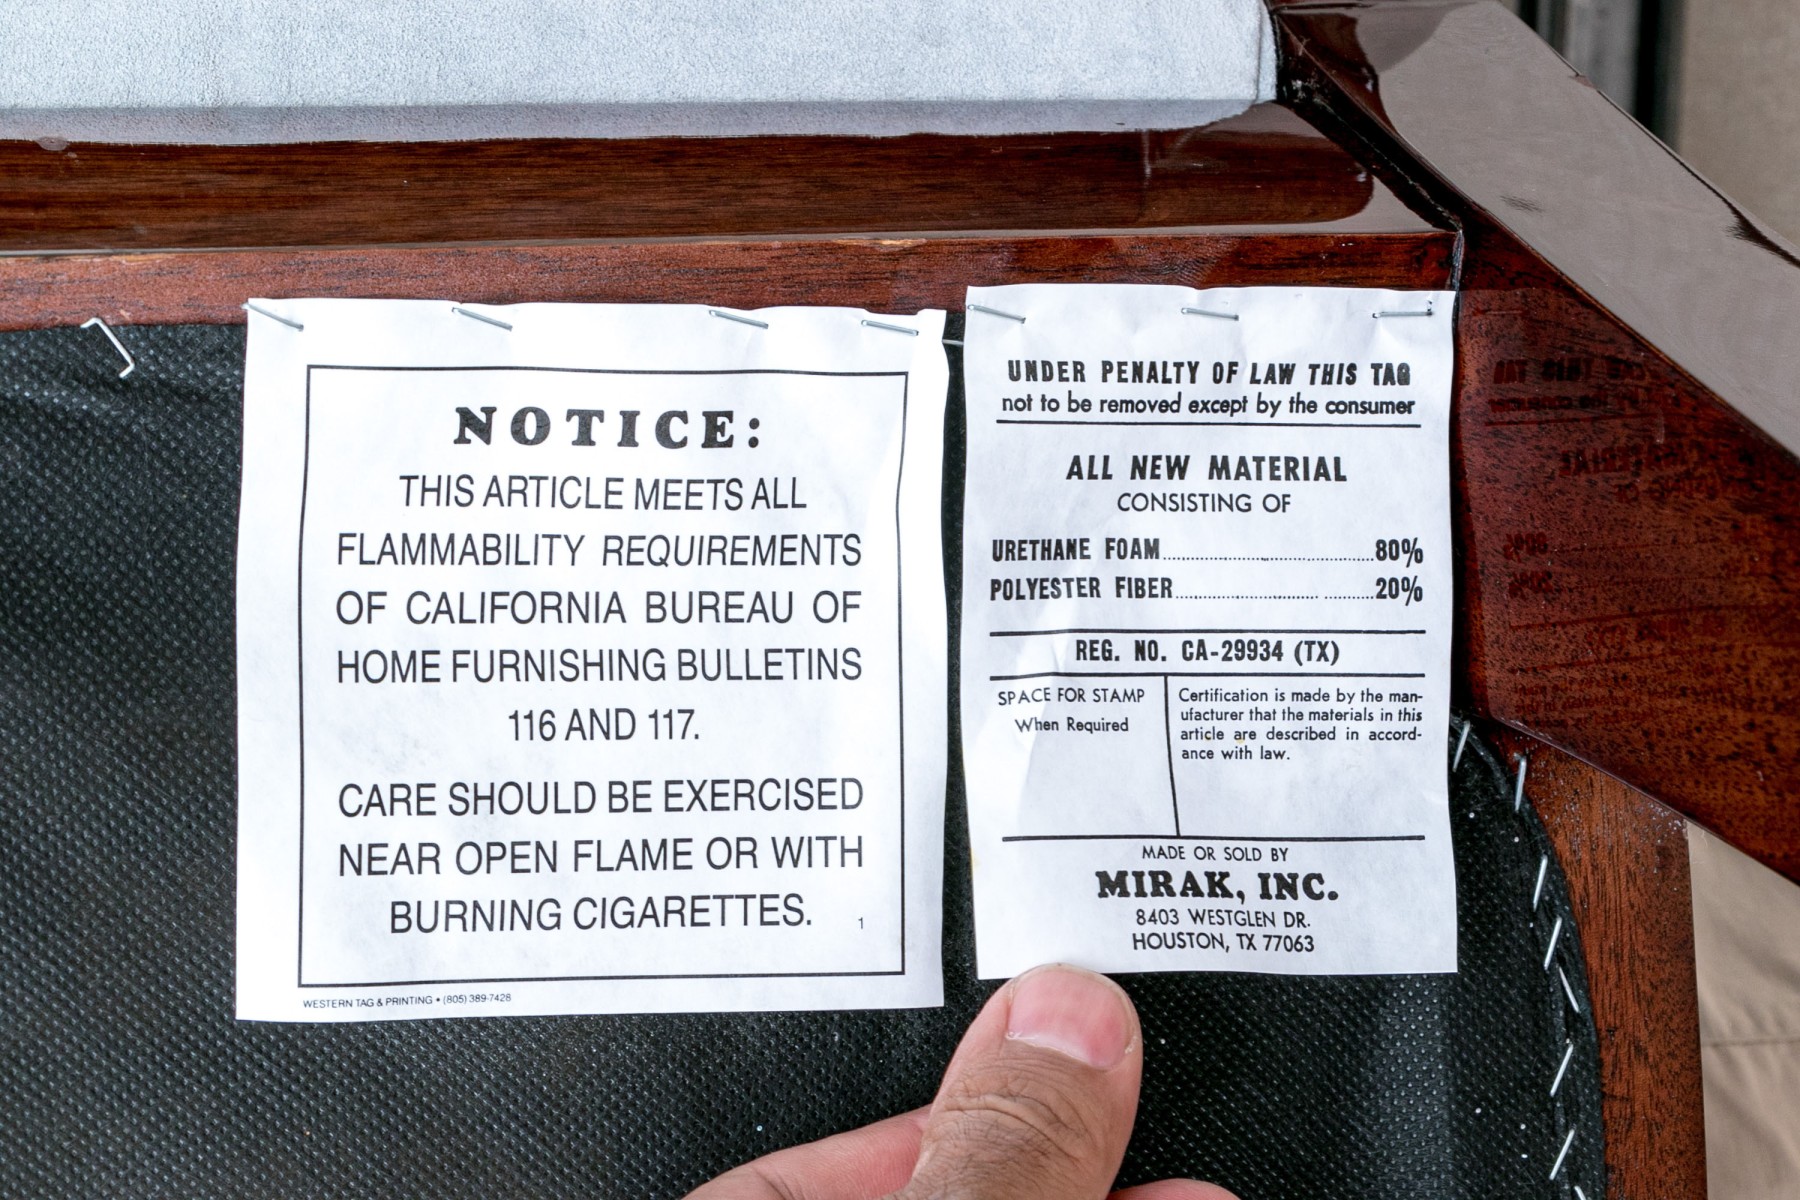 NOTICE:
THIS ARTICLE MEETS ALL
FLAMMABILITY REQUIREMENTS
OF CALIFORNIA BUREAU OF
HOME FURNISHING BULLETINS
116 AND 117.
CARE SHOULD BE EXERCISED
NEAR OPEN FLAME OR WITH
BURNING CIGARETTES.
1
WESTERN TAG & PRINTING • (805) 389-7428
UNDER PENALTY OF LAW THIS TAG
not to be removed except by the consumer
ALL NEW MATERIAL
CONSISTING OF
URETHANE FOAM.............................80%
POLYESTER FIBER...........................20%
REG. NO. CA-29934 (TX)
SPACE FOR STAMP
When Required
Certification is made by the man-
ufacturer that the materials in this
article are described in accord-
ance with law.
MADE OR SOLD BY
MIRAK, INC.
8403 WESTGLEN DR.
HOUSTON, TX 77063